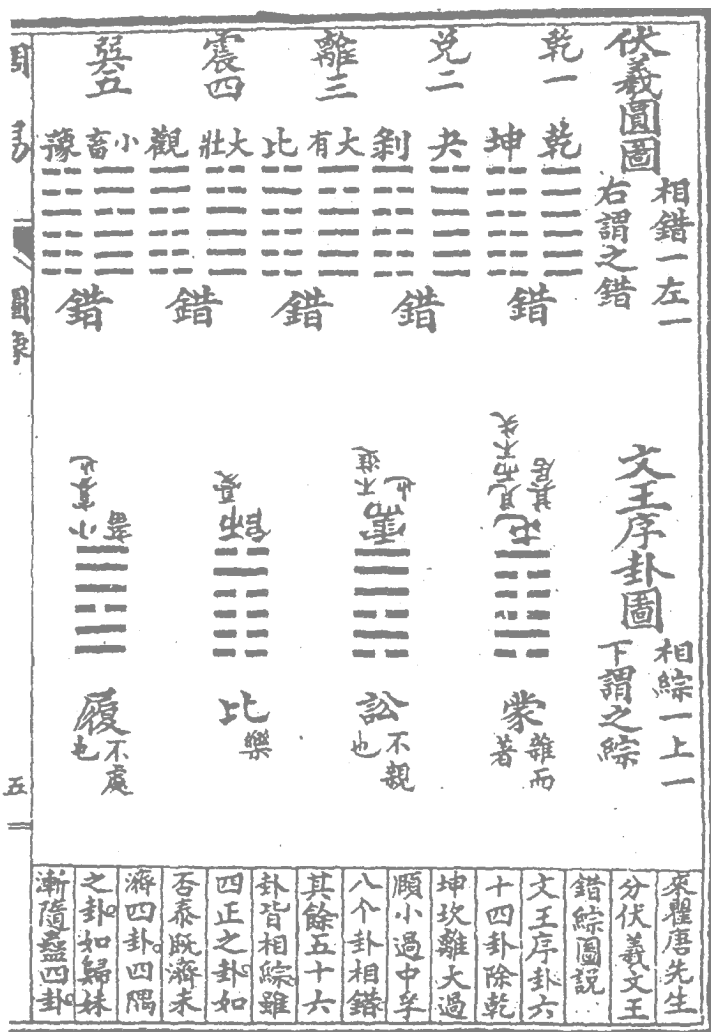 伏羲圓圖
相錯一左一
右謂之錯
乾一
兌二
離三
震四
巽五
乾
坤
夬
剝
大有
比
大壯
觀
小畜
豫
錯
錯
錯
錯
錯
文王序卦圖
相綜一上一
下謂之綜
屯
見而不失
其居
蒙
雜而
著
需
不進
也
訟
不親
也
師
憂
比
樂
小畜
寡也
履
不處
也
來瞿唐先生
分伏羲文王
錯綜圖說
文王序卦六
十四卦除乾
坤坎離大過
頤小過中孚
八个卦相錯
其餘五十六
卦皆相綜雖
四正之卦如
否泰既濟未
濟四卦四隅
之卦如歸妹
漸隨蠱四卦
五